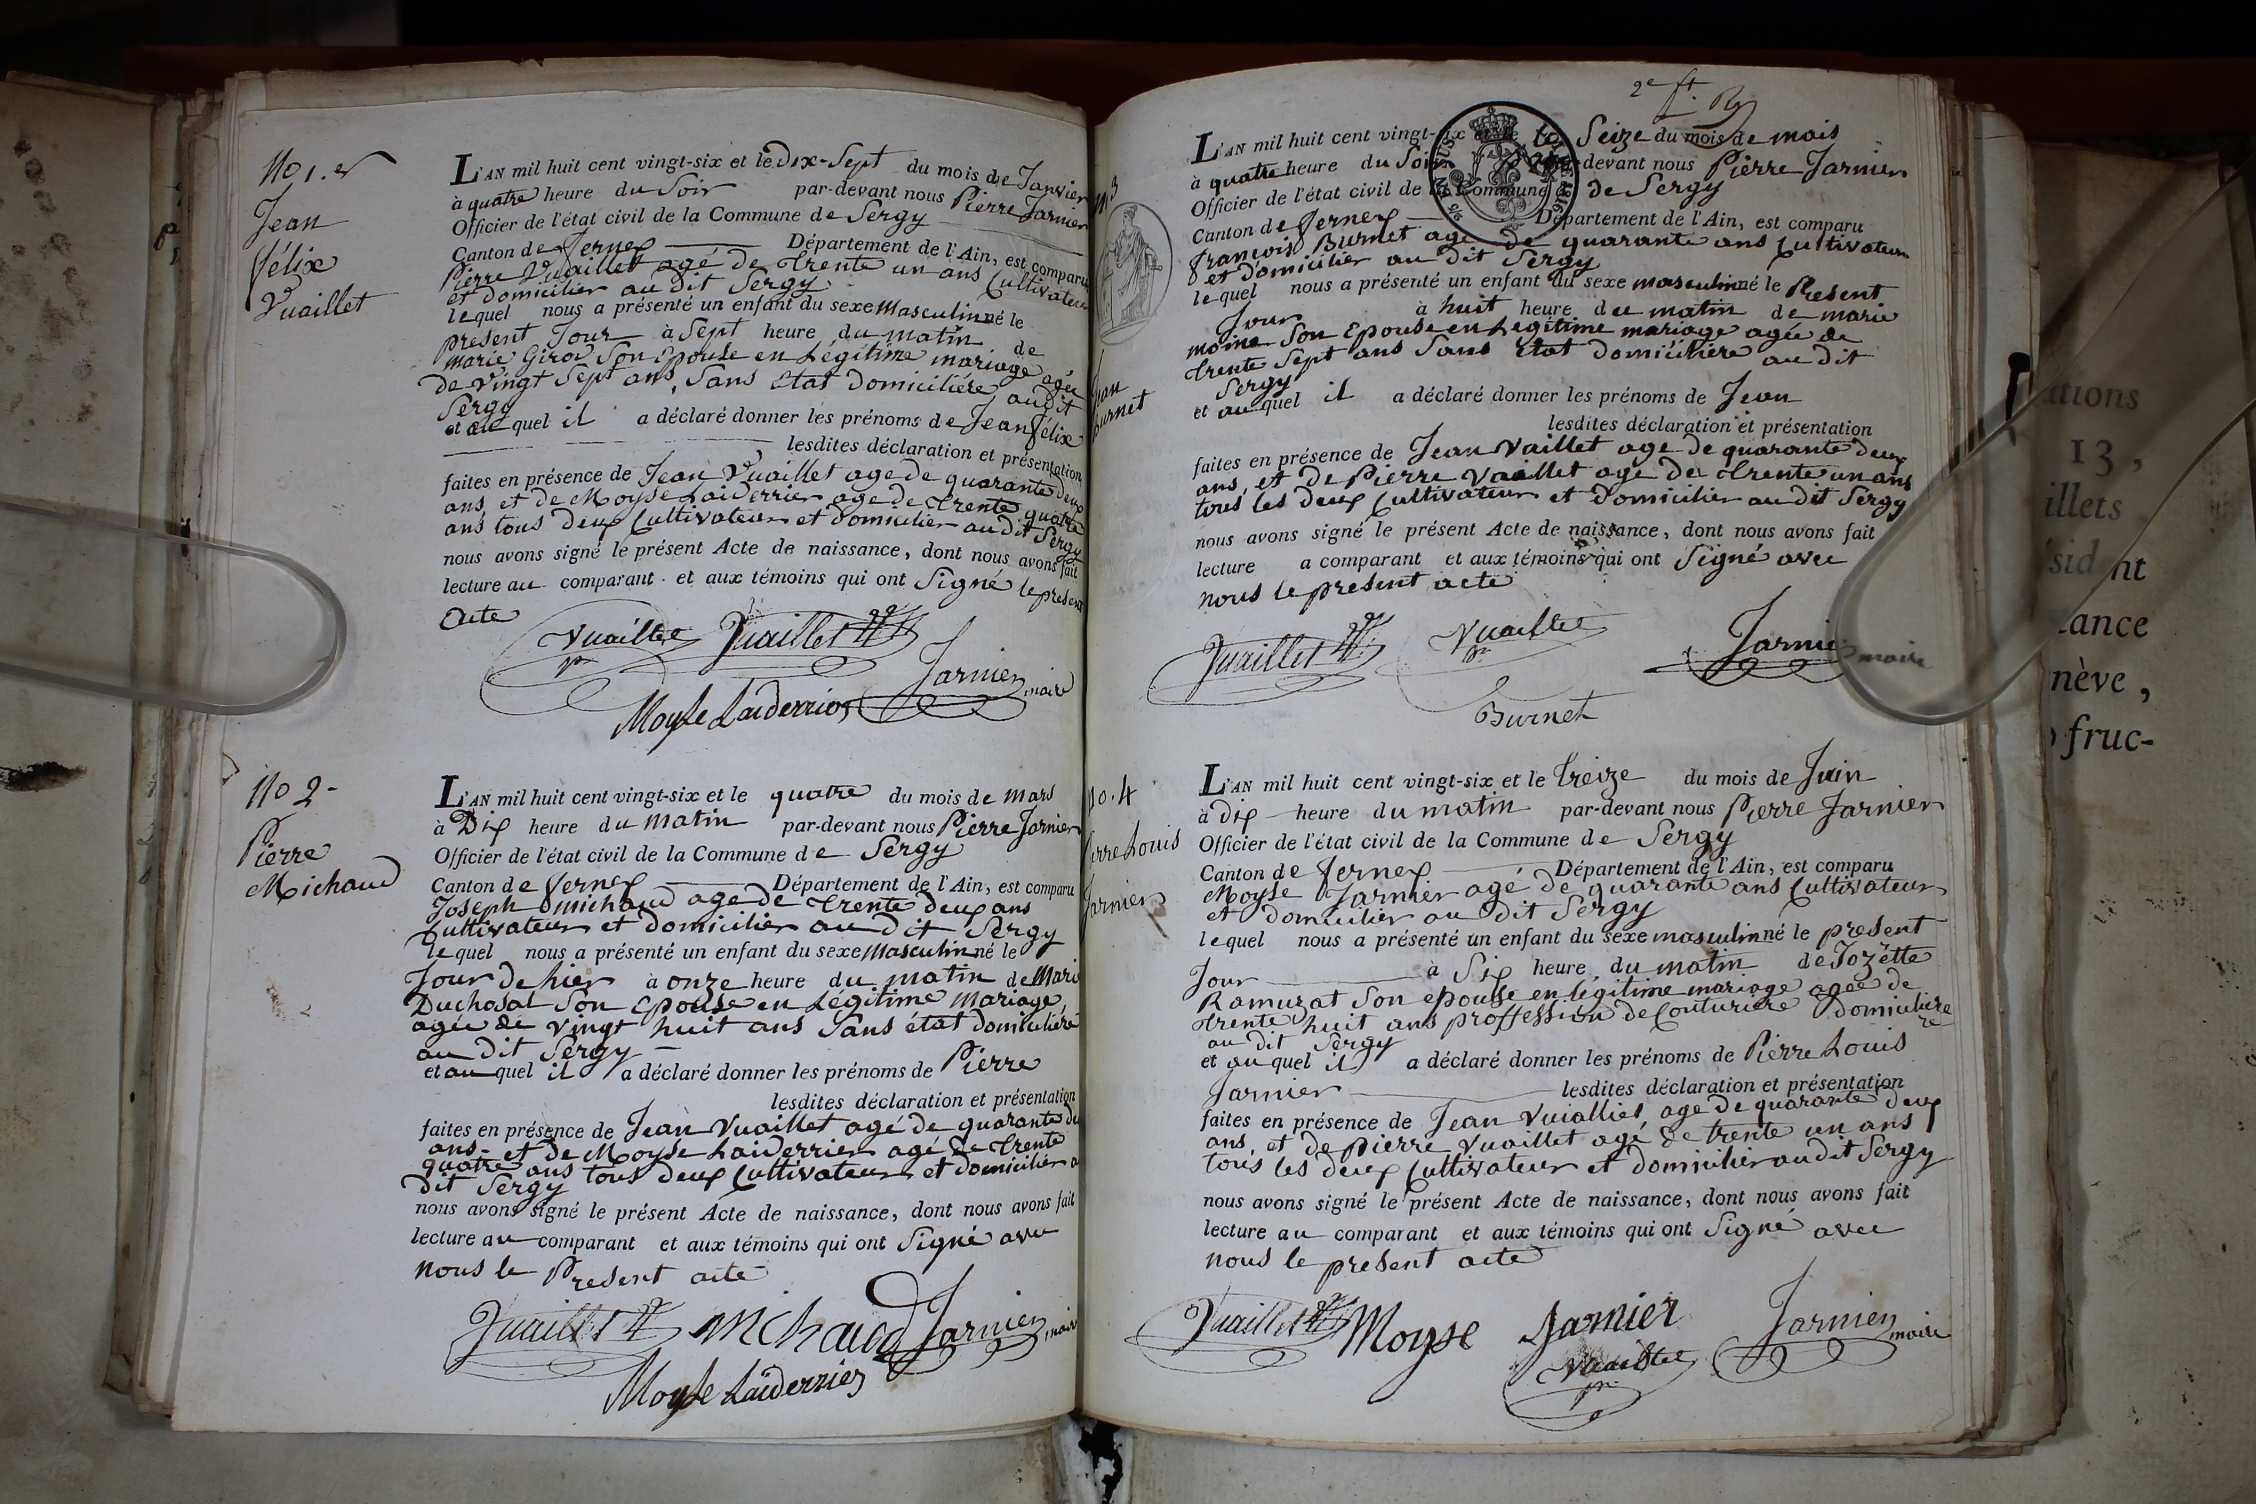 No 1.er
Jean
félix
Vuaillet
L'AN mil huit cent vingt-six et le Dix-Sept du mois de Janvier
à quatre heure du Soir par-devant nous Pierre Jarnier
Officier de l'état civil de la Commune de Sergy
Canton de ferney Département de l'Ain, est comparu
Pierre Vuaillet agé de trente un ans Cultivateur
et domicilier au dit Sergy
lequel nous a présenté un enfant du sexe Masculin né le
present Jour à Sept heure du matin de
marie Girod Son Epouse en Légitime mariage agée
de vingt Sept ans, Sans Etat domiciliére audit
Sergy
et au quel il a déclaré donner les prénoms de Jean félix
lesdites déclaration et présentation
faites en présence de Jean Vuaillet age de quarante deux
ans, et de Moyse Laiderrier age de trente quatre
ans tous deux Cultivateur et domicilier au dit Sergy
nous avons signé le présent Acte de naissance, dont nous avons fait
lecture au comparant et aux témoins qui ont Signé le present
acte
Vuaillet Vuaillet
Jarnier maire
Moyse Laiderrier
No 2-
Pierre
Michaud
L'AN mil huit cent vingt-six et le quatre du mois de mars
à Dix heure du matin par-devant nous Pierre Jarnier
Officier de l'état civil de la Commune de Sergy
Canton de ferney Département de l'Ain, est comparu
Joseph michaud age de trente deux ans
Cultivateur et domicilier au dit Sergy
lequel nous a présenté un enfant du sexe Masculin né le
Jour de hier à onze heure du matin de Marie
Duchosal Son Epouse en Légitime Mariage
agée de vingt huit ans Sans état domiciliére
au dit Sergy
et au quel il a déclaré donner les prénoms de Pierre
lesdites déclaration et présentation
faites en présence de Jean Vuaillet agé de quarante
ans et de Moyse Laiderrier agé de trente
quatre ans tous deux Cultivateur et domicilier au
dit Sergy
nous avons signé le présent Acte de naissance, dont nous avons fait
lecture au comparant et aux témoins qui ont Signé avec
nous le Present acte
Vuaillet Michaud Jarnier maire
Moyse Laiderrier
2e ft.
L'AN mil huit cent vingt-six et le Seize du mois de mois
à quatre heure du Soir par-devant nous Pierre Jarnier
Officier de l'état civil de la Commune de Sergy
Canton de ferney Département de l'Ain, est comparu
françois Burnet age de quarante ans Cultivateur
et domicilier au dit Sergy
lequel nous a présenté un enfant du sexe masculin né le Present
Jour à huit heure du matin de marie
moine Son Epouse en Legitime mariage agée de
trente Sept ans Sans Etat domiciliére au dit
Sergy
Jean
Burnet
et au quel il a déclaré donner les prénoms de Jean
lesdites déclaration et présentation
faites en présence de Jean Vaillet age de quarante deux
ans, et de Pierre Vaillet agé de trente un ans
tous les deux Cultivateur et domicilier au dit Sergy
nous avons signé le présent Acte de naissance, dont nous avons fait
lecture a comparant et aux témoins qui ont Signé avec
nous le present acte
Vuaillet Vuaillet Jarnier maire
Burnet
No. 4
Pierre Louis
Jarnier
L'AN mil huit cent vingt-six et le treize du mois de Juin
à dix heure du matin par-devant nous Pierre Jarnier
Officier de l'état civil de la Commune de Sergy
Canton de ferney Département de l'Ain, est comparu
Moyse Jarnier agé de quarante ans Cultivateur
et domicilier au dit Sergy
lequel nous a présenté un enfant du sexe masculin né le present
Jour à Six heure du matin de Jozètte
Ramuzat Son epousse en légitime mariage agée de
trente huit ans proffession de Couturiere domiciliere
au dit Sergy
et au quel il a déclaré donner les prénoms de Pierre Louis
Jarnier lesdites déclaration et présentation
faites en présence de Jean Vuialliet age de quarante deux
ans, et de Pierre Vuaillet agé de trente un ans
tous les deux Cultivateur et domicilier au dit Sergy
nous avons signé le présent Acte de naissance, dont nous avons fait
lecture au comparant et aux témoins qui ont Signé avec
nous le present acte
Vuaillet Moyse Jarnier Jarnier maire
Vuaillet
ations
13,
illets
nt
ance
nève,
fruc-